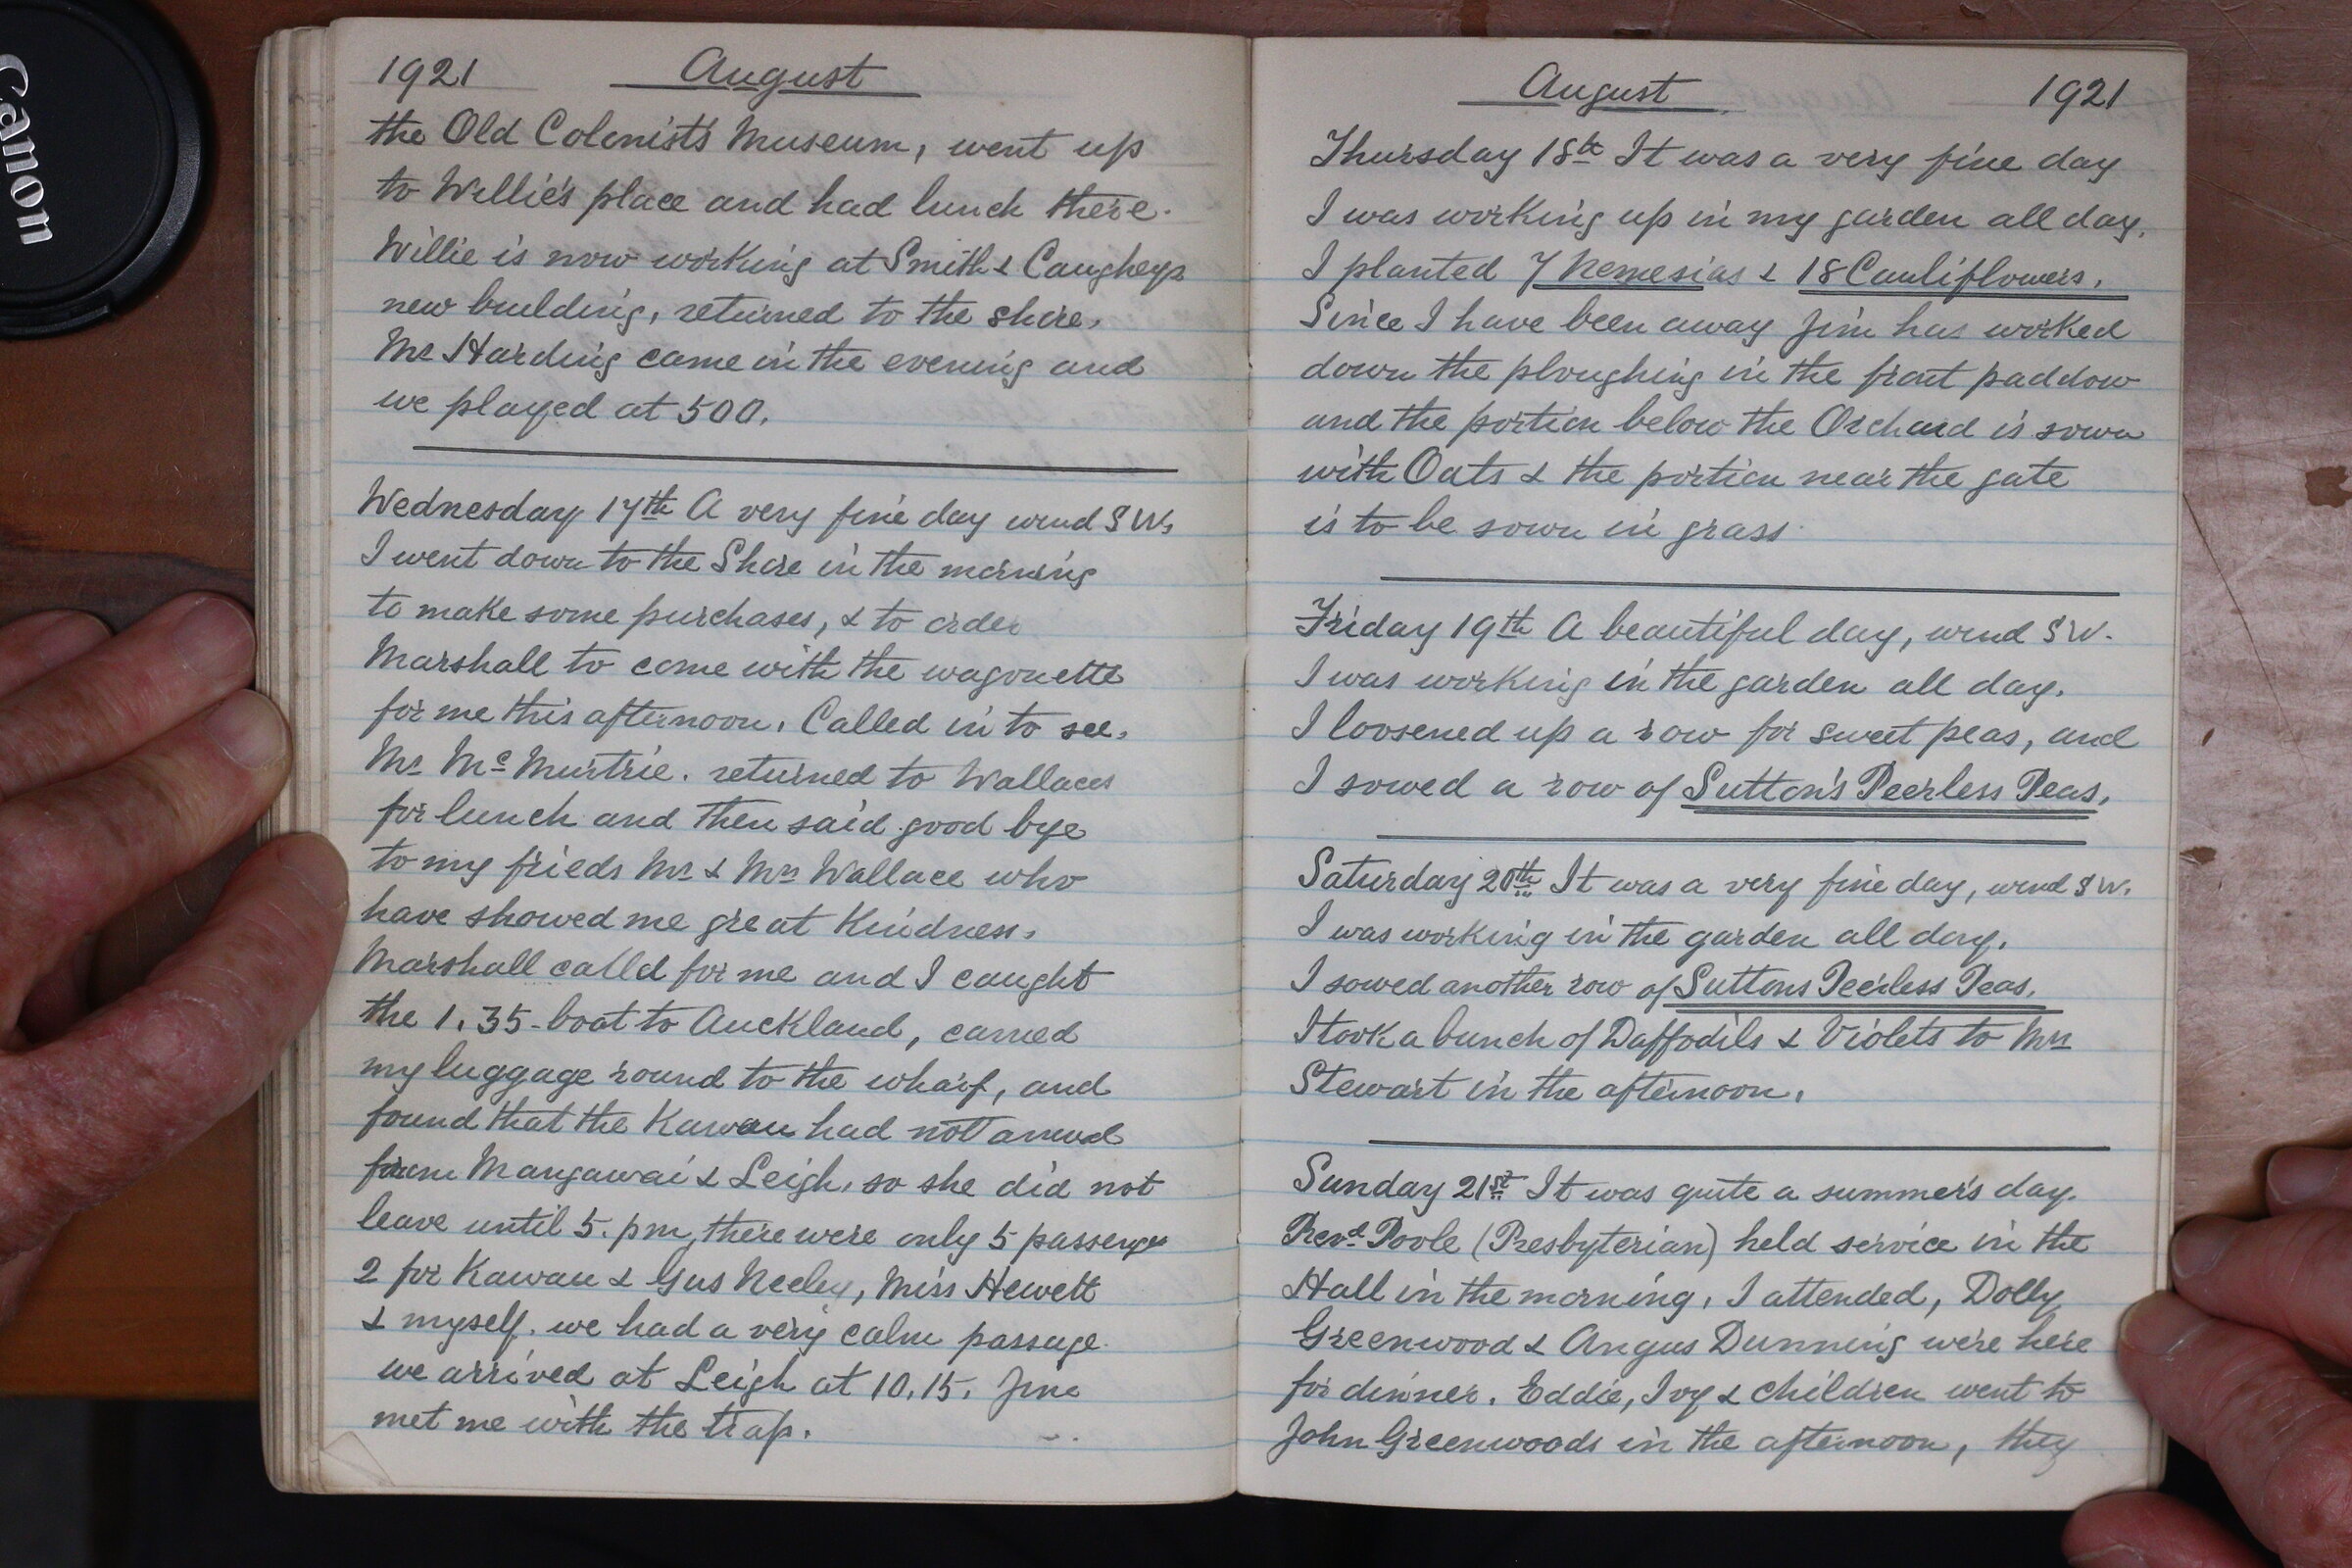 Canon
1921 August
the Old Colonist's Museum, went up
to Willie's place and had lunch there.
Willie is now working at Smith & Caugheys
new building, returned to the shore.
Mr Harding came in the evening and
we played at 500.
Wednesday 17th A very fine day wind S W,
I went down to the Shore in the morning
to make some purchases, & to order
Marshall to come with the wagonette
for me this afternoon. Called in to see,
Mr McMurtrie. returned to Wallaces
for lunch and then said good bye
to my frieds Mr & Mrs Wallace who
have showed me great Kindness.
Marshall called for me and I caught
the 1.35-boat to Auckland, carried
my luggage round to the wharf, and
found that the Kawau had not arrived
from Mangawai & Leigh, so she did not
leave until 5. pm, there were only 5 passengers
2 for Kawau & Gus Neeley, Miss Hewett
& myself. we had a very calm passage.
we arrived at Leigh at 10.15. Jim
met me with the trap.
August 1921
Thursday 18th It was a very fine day
I was working up in my garden all day.
I planted 7 Nemesias & 18 Cauliflowers.
Since I have been away Jim has worked
down the ploughing in the front paddow
and the portion below the Orchard is sown
with Oats & the portion near the gate
is to be sown in grass.
Friday 19th A beautiful day, wind S W.
I was working in the garden all day.
I loosened up a row for sweet peas, and
I sowed a row of Sutton's Peerless Peas.
Saturday 20th It was a very fine day, wind S W.
I was working in the garden all day.
I sowed another row of Suttons Peerless Peas.
I took a bunch of Daffodils & Violets to Mrs
Stewart in the afternoon.
Sunday 21st It was quite a summer's day.
Revd Poole (Presbyterian) held service in the
Hall in the morning. I attended, Dolly
Greenwood & Angus Dunning were here
for dinner. Eddie, Ivy & children went to
John Greenwoods in the afternoon, they